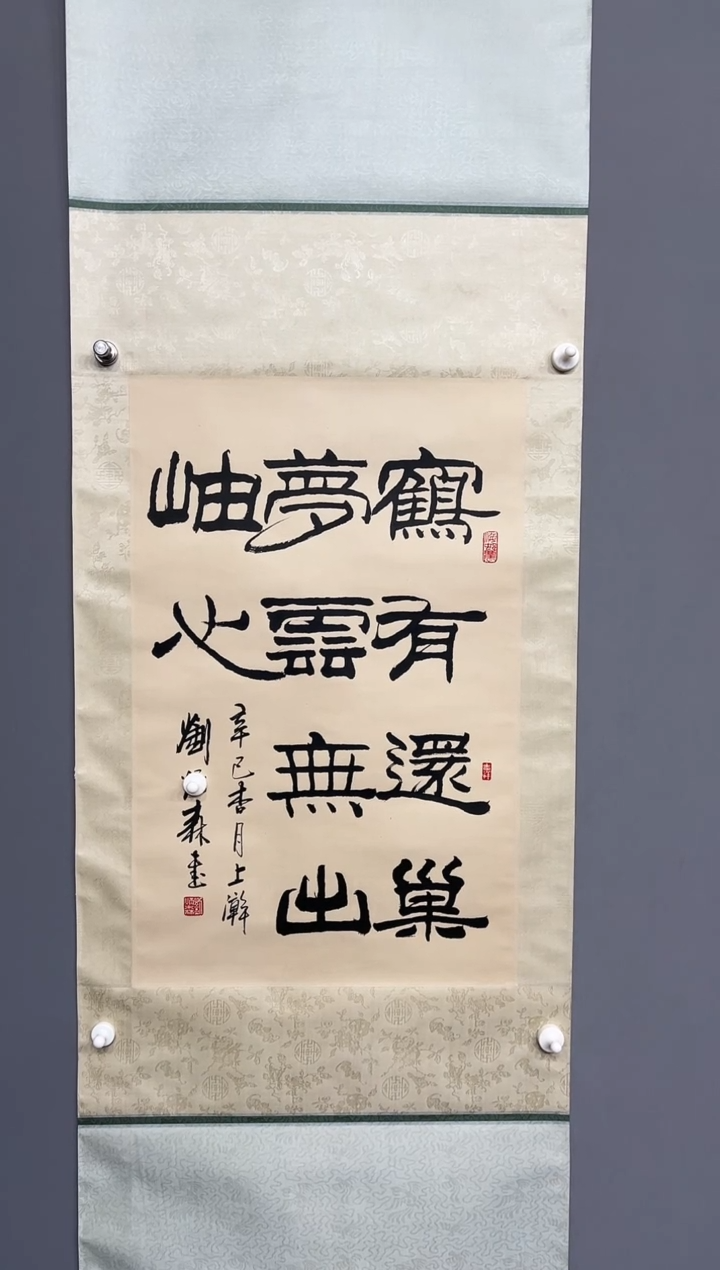 鶴有還巢
夢雲無出
岫心
辛巳杏月上澣
劉 森書